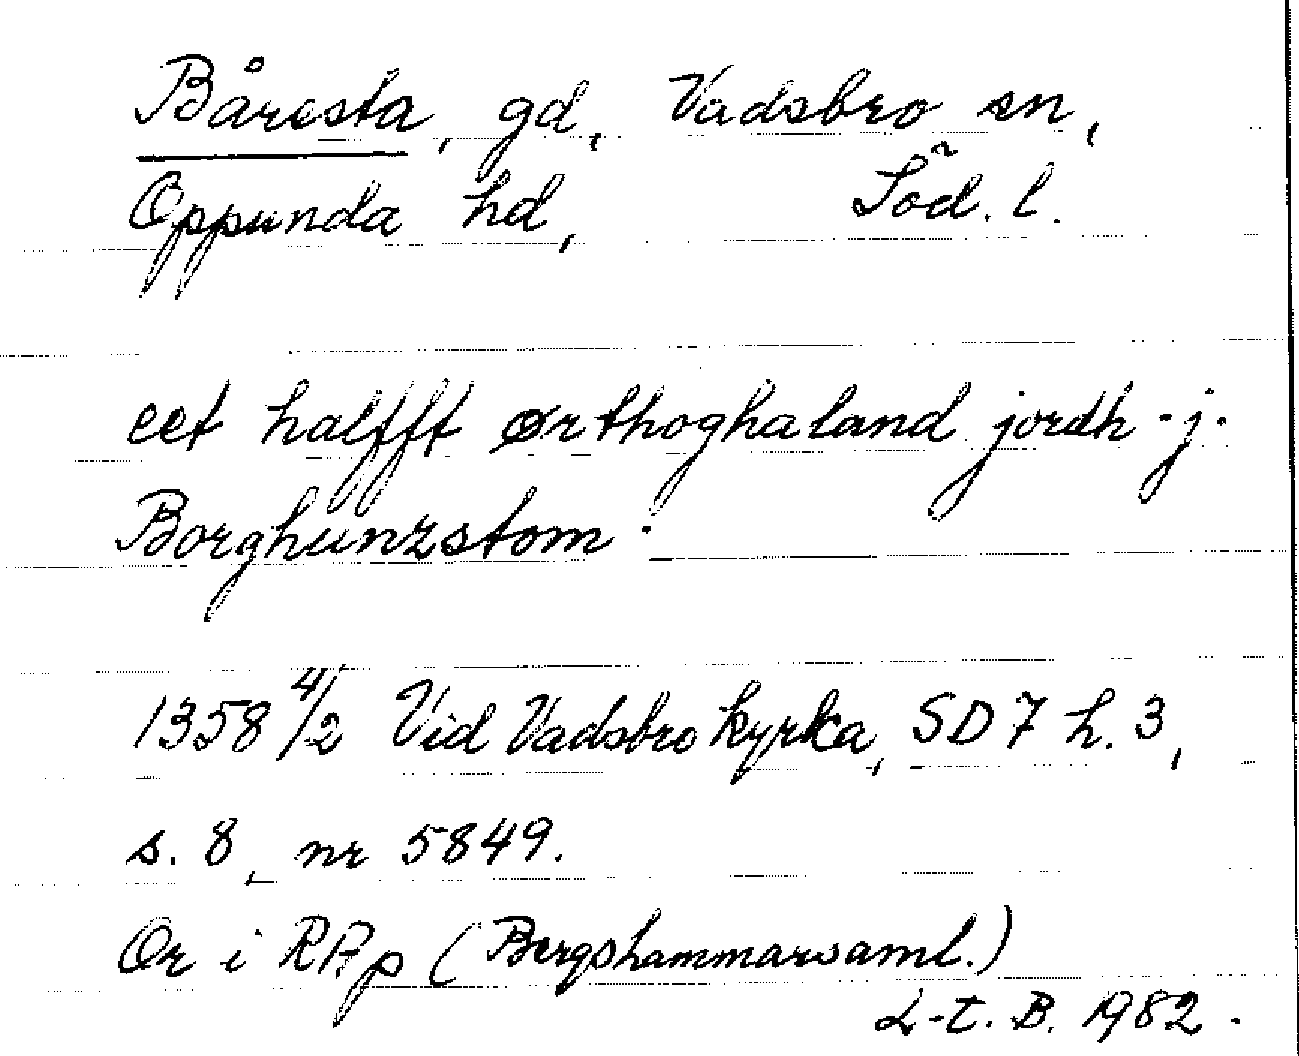 Båresta, gd, Vadsbro sn,
Oppunda hd, Söd. l.
eet halffft ørthoghaland jordh · j ·
Borghunzstom ·
1358 4/2 Vid Vadsbro kyrka, SD 7 h. 3,
s. 8, nr 5849.
Or i RAp (Bergshammarsaml.)
L-t. B. 1982.